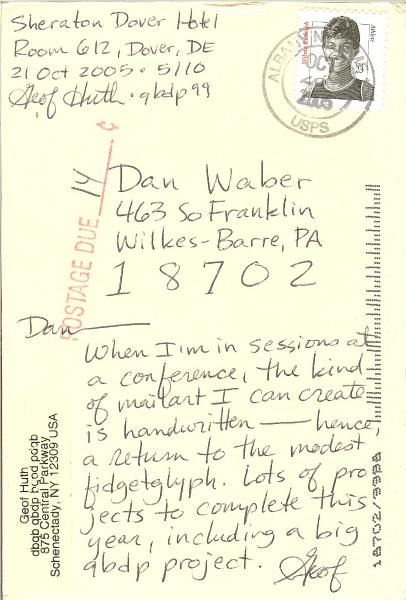 Sheraton Dover Hotel
Room 612, Dover, DE
21 Oct 2005 · 5/10
Geof Huth · qbdp 99
ALBANY, N
OCT
2005
USPS
23
POSTAGE DUE 14 ¢
Dan Waber
463 So Franklin
Wilkes-Barre, PA
18702
Dan—
When I'm in sessions at
a conference, the kind
of mailart I can create
is handwritten — hence,
a return to the modest
fidgetglyph. Lots of pro
jects to complete this
year, including a big
qbdp project. Geof
Geof Huth
875 Central Parkway
Schenectady, NY 12309 USA